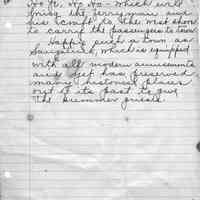 which will
bring the ferryman and
his craft to the West shore
to carry the passengers to town
Happy such a town as
Saugatuck, which is equipped
with all modern amusements
and yet has preserved
many historical places
out of its past to give
the summer guests